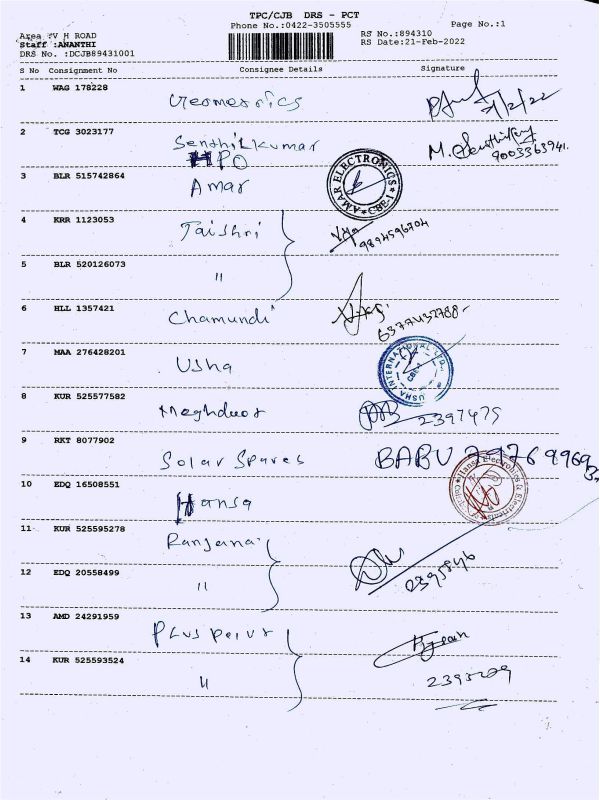 TPC/CJB DRS - PCT
Phone No.:0422-3505555
Page No.:1
Area :V H ROAD
RS No.:894310
Staff :ANANTHI
RS Date:21-Feb-2022
DRS No. :DCJB89431001
S No Consignment No Consignee Details Signature
1 WAG 178228 Geomatrics 21/2/22
2 TCG 3023177 Senthilkumar M. Senthilkumar
HPO 9003363941.
3 BLR 515742864 Amar AMAR ELECTRONICS CBE-1
4 KRR 1123053 Jaishri 9894596704
5 BLR 520126073 "
6 HLL 1357421 Chamundi 6377432788-
7 MAA 276428201 Usha USHA INTERNATIONAL LTD.
8 KUR 525577582 Meghdoot 2397475
9 RKT 8077902 Solar Spares BABU
10 EDQ 16508551 Hansa Hansa Electronics & Electricals
11 KUR 525595278 Ranjanai
12 EDQ 20558499 " 2395846
13 AMD 24291959
14 KUR 525593524 "